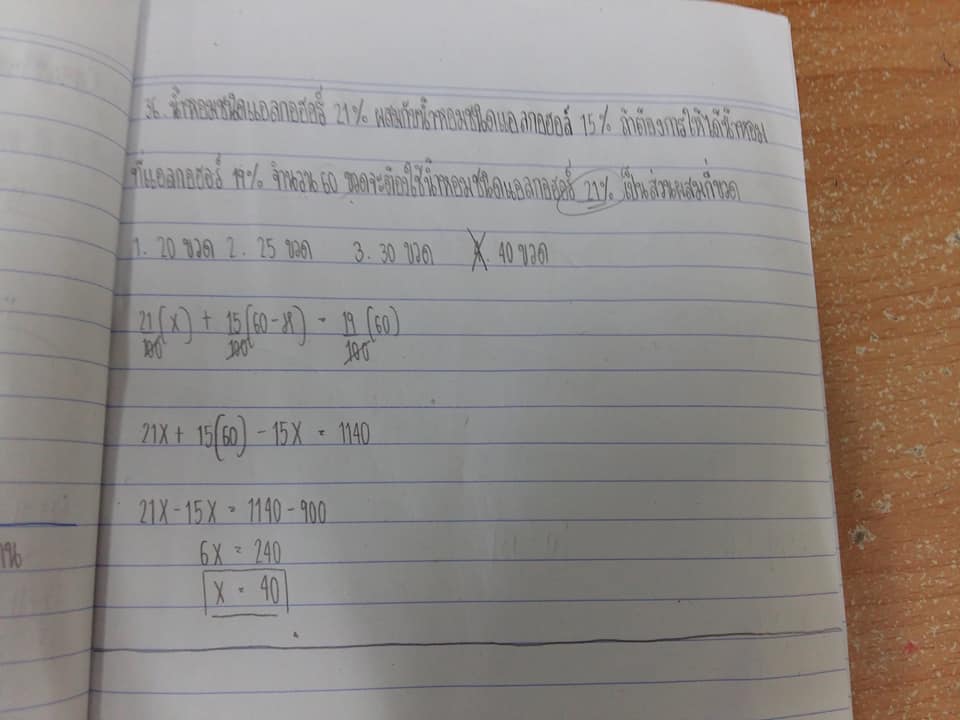 36. น้ำหอมชนิดแอลกอฮอร์ 21% ผสมกับน้ำหอมชนิดแอลกอฮอล์ 15% ถ้าต้องการให้ได้น้ำหอม
ที่แอลกอฮอร์ 19% จำนวน 60 ขวดจะต้องใช้น้ำหอมชนิดแอลกอฮอร์ 21% เป็นส่วนผสมกี่ขวด
1. 20 ขวด 2. 25 ขวด 3. 30 ขวด 4. 40 ขวด
21/100 (x) + 15/100 (60-x) = 19/100 (60)
21x + 15(60) - 15x = 1140
21x - 15x = 1140 - 900
6x = 240
x = 40